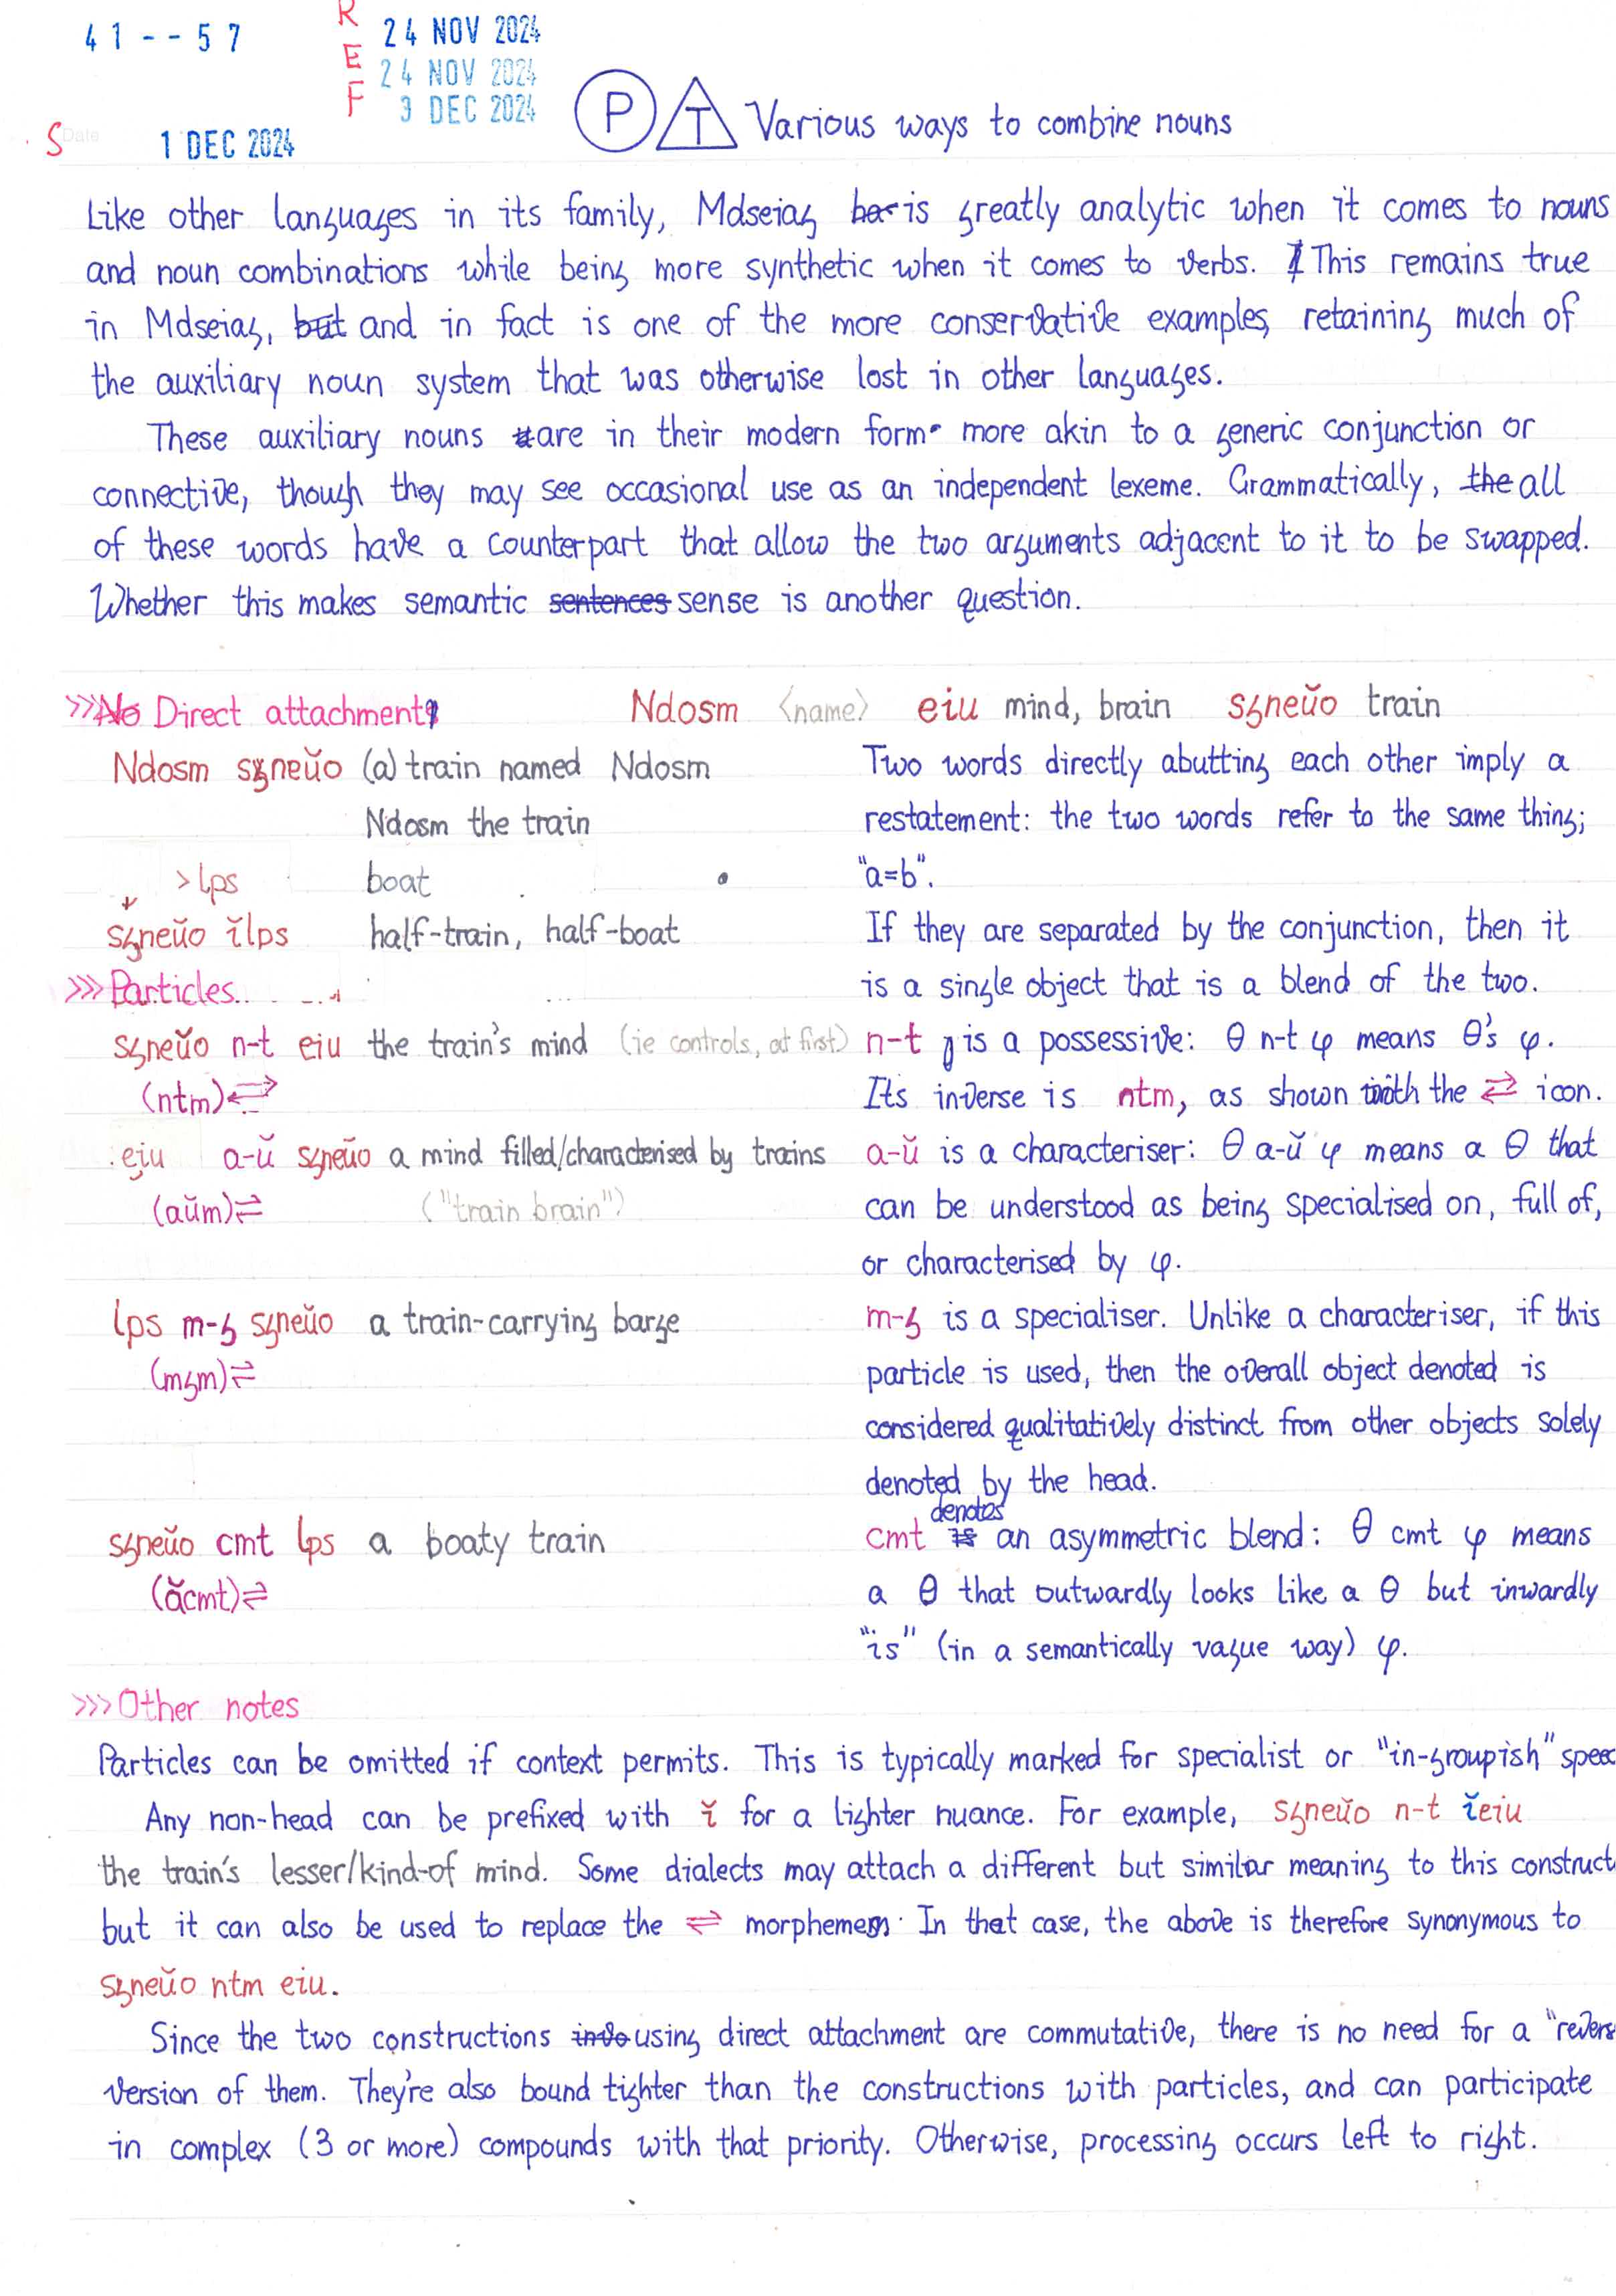 41--57
REF
24 NOV 2024
24 NOV 2024
3 DEC 2024
S Date 1 DEC 2024
P T Various ways to combine nouns
Like other languages in its family, Mdseiag is greatly analytic when it comes to nouns
and noun combinations while being more synthetic when it comes to verbs. This remains true
in Mdseiag, and in fact is one of the more conservative examples, retaining much of
the auxiliary noun system that was otherwise lost in other languages.
These auxiliary nouns are in their modern form more akin to a generic conjunction or
connective, though they may see occasional use as an independent lexeme. Grammatically, all
of these words have a counterpart that allow the two arguments adjacent to it to be swapped.
Whether this makes semantic sense is another question.
>>> Direct attachment
Ndosm <name> eiu mind, brain sgneŭo train
Ndosm sgneŭo (a) train named Ndosm
Ndosm the train
>lps boat
sgneŭo ĭlps half-train, half-boat
Two words directly abutting each other imply a
restatement: the two words refer to the same thing;
"a=b".
If they are separated by the conjunction, then it
is a single object that is a blend of the two.
>>> Particles
sgneŭo n-t eiu the train's mind (ie controls, at first)
(ntm)⇌
n-t is a possessive: θ n-t φ means θ's φ.
Its inverse is ntm, as shown with the ⇌ icon.
eiu a-ŭ sgneŭo a mind filled/characterised by trains
(aŭm)⇌ ("train brain")
a-ŭ is a characteriser: θ a-ŭ φ means a θ that
can be understood as being specialised on, full of,
or characterised by φ.
lps m-g sgneŭo a train-carrying barge
(mgm)⇌
m-g is a specialiser. Unlike a characteriser, if this
particle is used, then the overall object denoted is
considered qualitatively distinct from other objects solely
denoted by the head.
sgneŭo cmt lps a boaty train
(ăcmt)⇌
cmt denotes an asymmetric blend: θ cmt φ means
a θ that outwardly looks like a θ but inwardly
"is" (in a semantically vague way) φ.
>>> Other notes
Particles can be omitted if context permits. This is typically marked for specialist or "in-groupish" speec
Any non-head can be prefixed with ĭ for a lighter nuance. For example, sgneŭo n-t ĭeiu
the train's lesser/kind-of mind. Some dialects may attach a different but similar meaning to this construct
but it can also be used to replace the ⇌ morphemes. In that case, the above is therefore synonymous to
sgneŭo ntm eiu.
Since the two constructions using direct attachment are commutative, there is no need for a "revers
version of them. They're also bound tighter than the constructions with particles, and can participate
in complex (3 or more) compounds with that priority. Otherwise, processing occurs left to right.